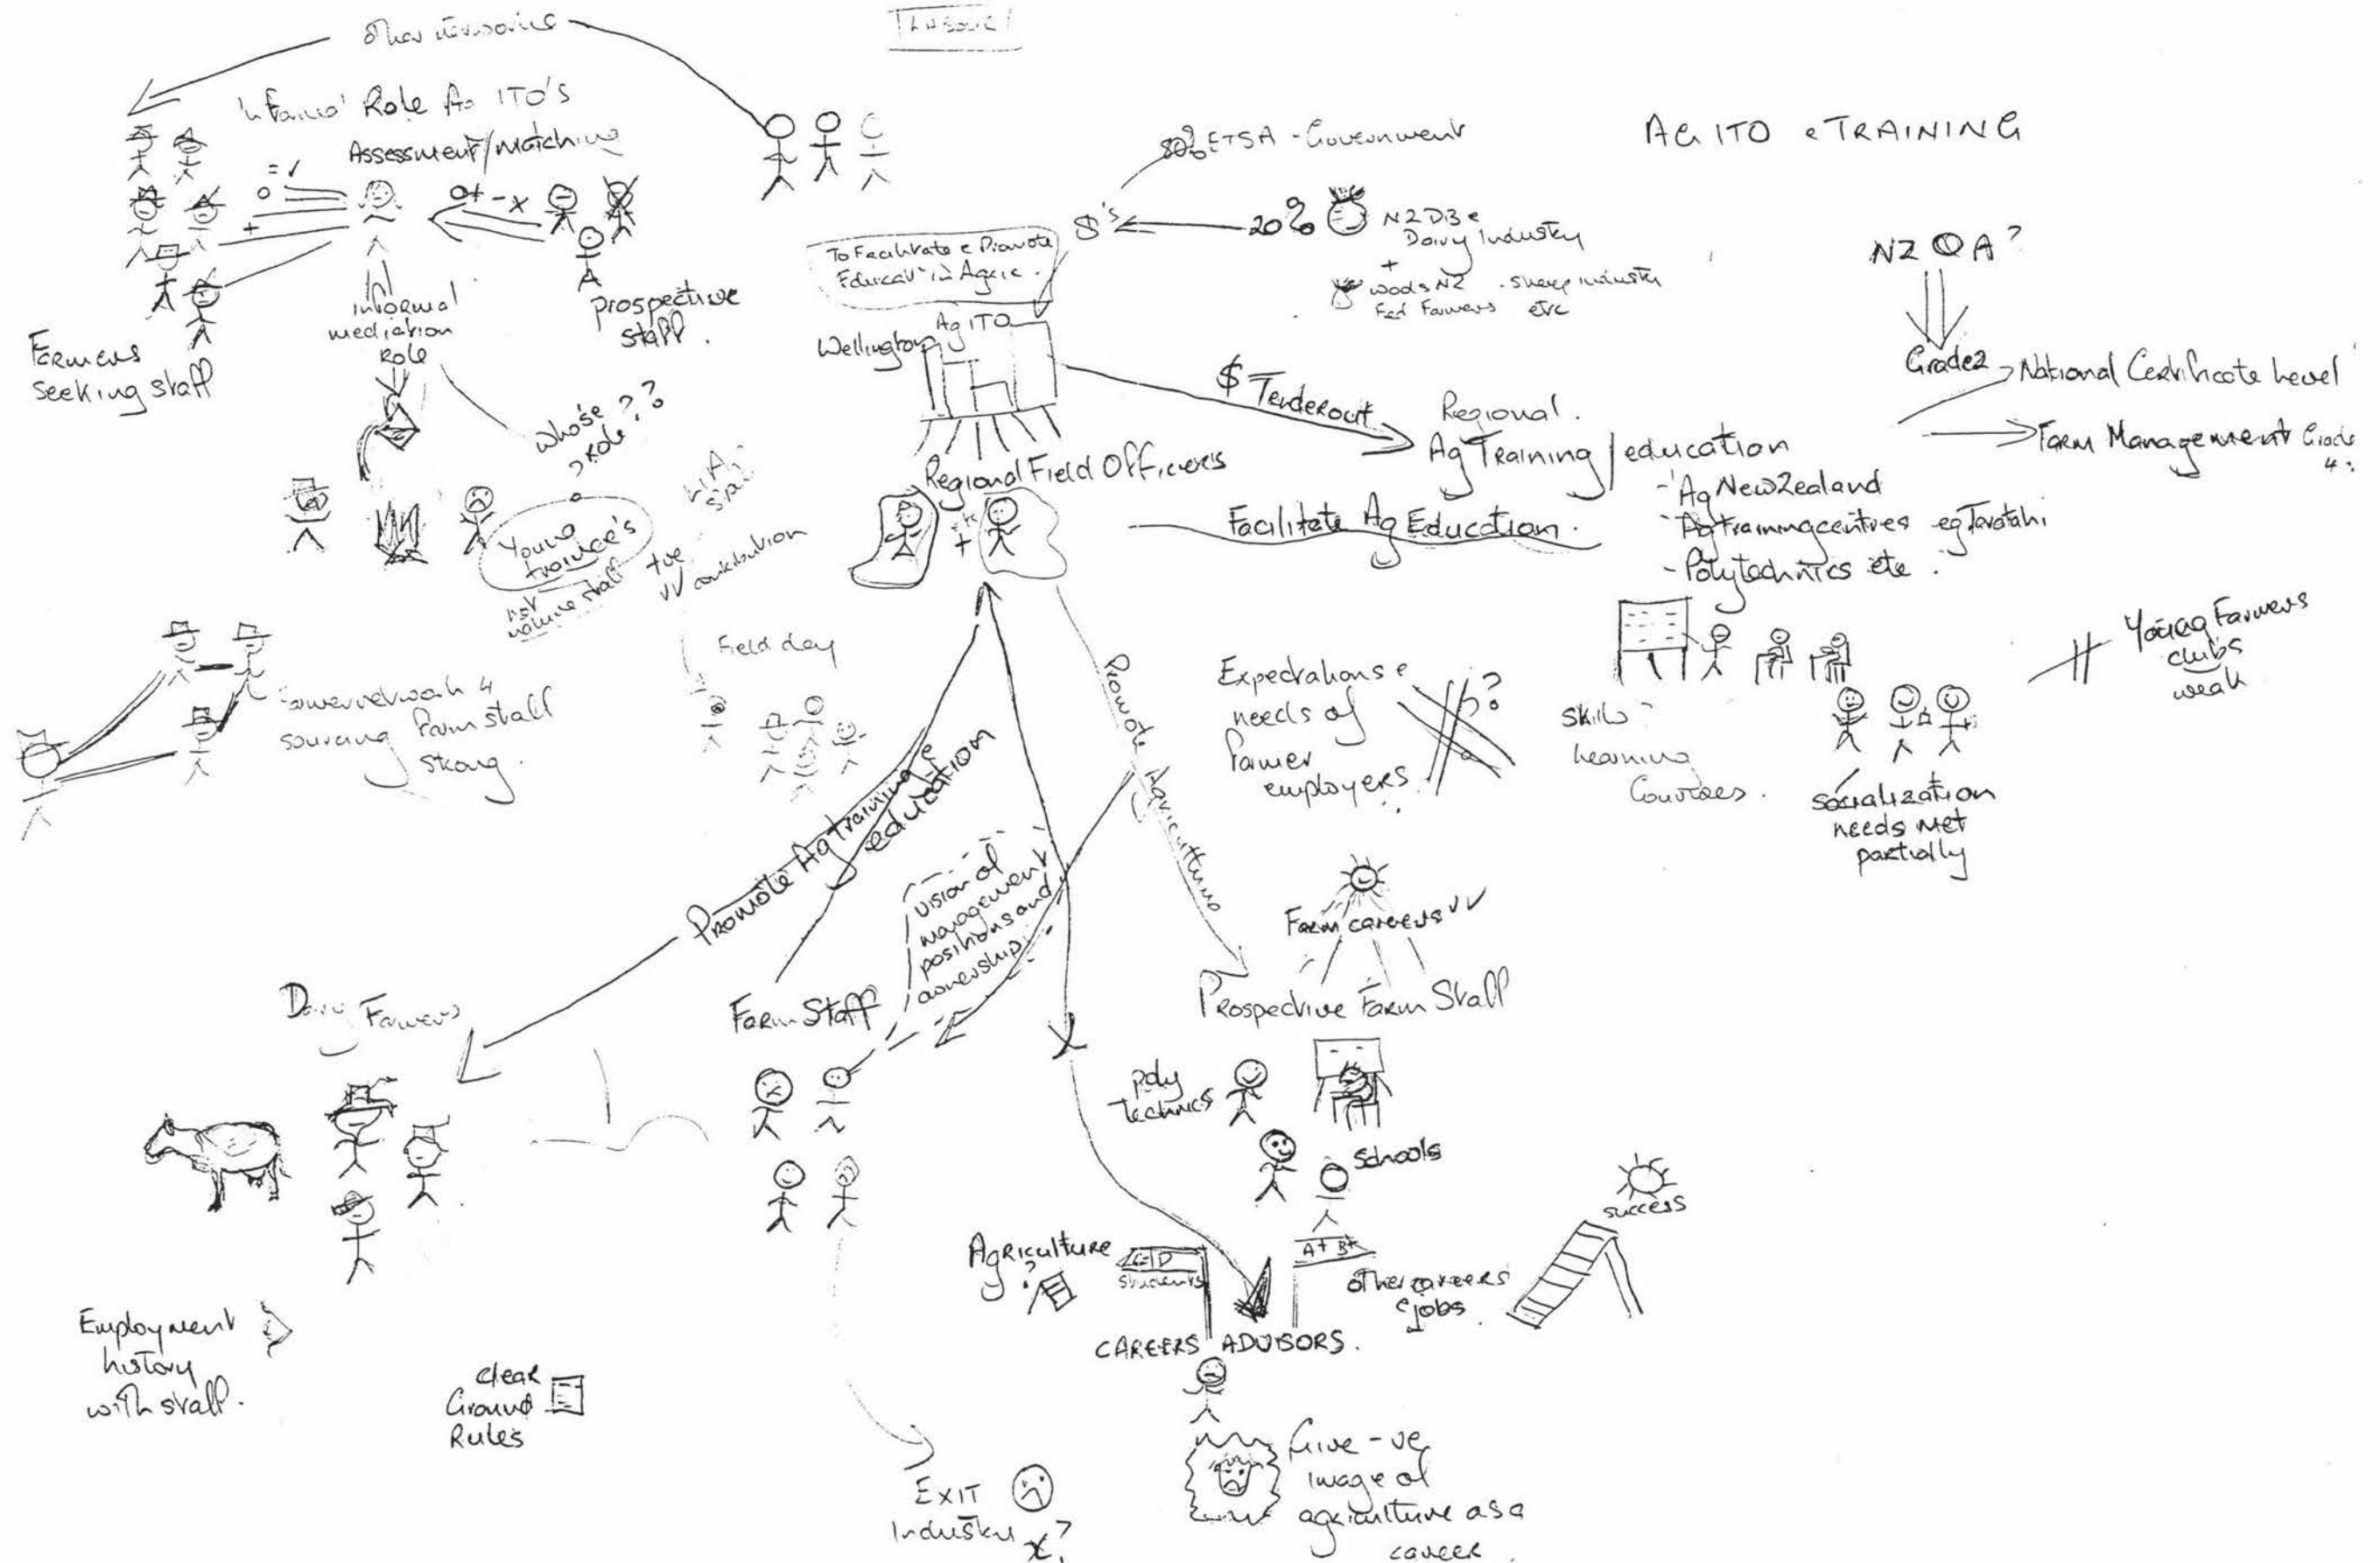 AG ITO & TRAINING
Role Ag ITO's
Assessment/matching
= ✓
+
O+ - x
Farmers
seeking staff
informal
mediation
Role
prospective
staff.
whose ??
Role
Young
trainee's
not
value staff
+ve
✓✓ contribution
Field day
sourcing farm staff
strong.
80% ETSA - Government
$'s
20%
NZDB &
Dairy Industry
+
Wools NZ - Sheep industry
Fed Farmers etc
To Facilitate & Promote
Educat' in Agric.
Ag ITO
Wellington
Regional Field Officers
+
$ Tender out
Regional.
Ag Training / education
- Ag New Zealand
- Ag training centres eg Taratahi
- Polytechnics etc.
Facilitate Ag Education.
NZQA?
Grade 2
National Certificate Level
Farm Management Grade
4
Young Farmers
clubs
weak
Expectations &
needs of
farmer
employers
?
Skills?
Learning
Courses.
Socialization
needs met
partially
Promote Ag Training &
education
Promote Agriculture
vision of
management
positions and
ownership
Farm careers ✓✓
Prospective Farm Staff
Dairy Farmers
Farm Staff
poly
technics
Schools
success
Agriculture
?
students
A+ B+
other careers
& jobs
CAREERS ADVISORS.
Employment
history
with staff.
clear
Ground
Rules
Exit
Industry
x?
Give -ve
image of
agriculture as a
career.